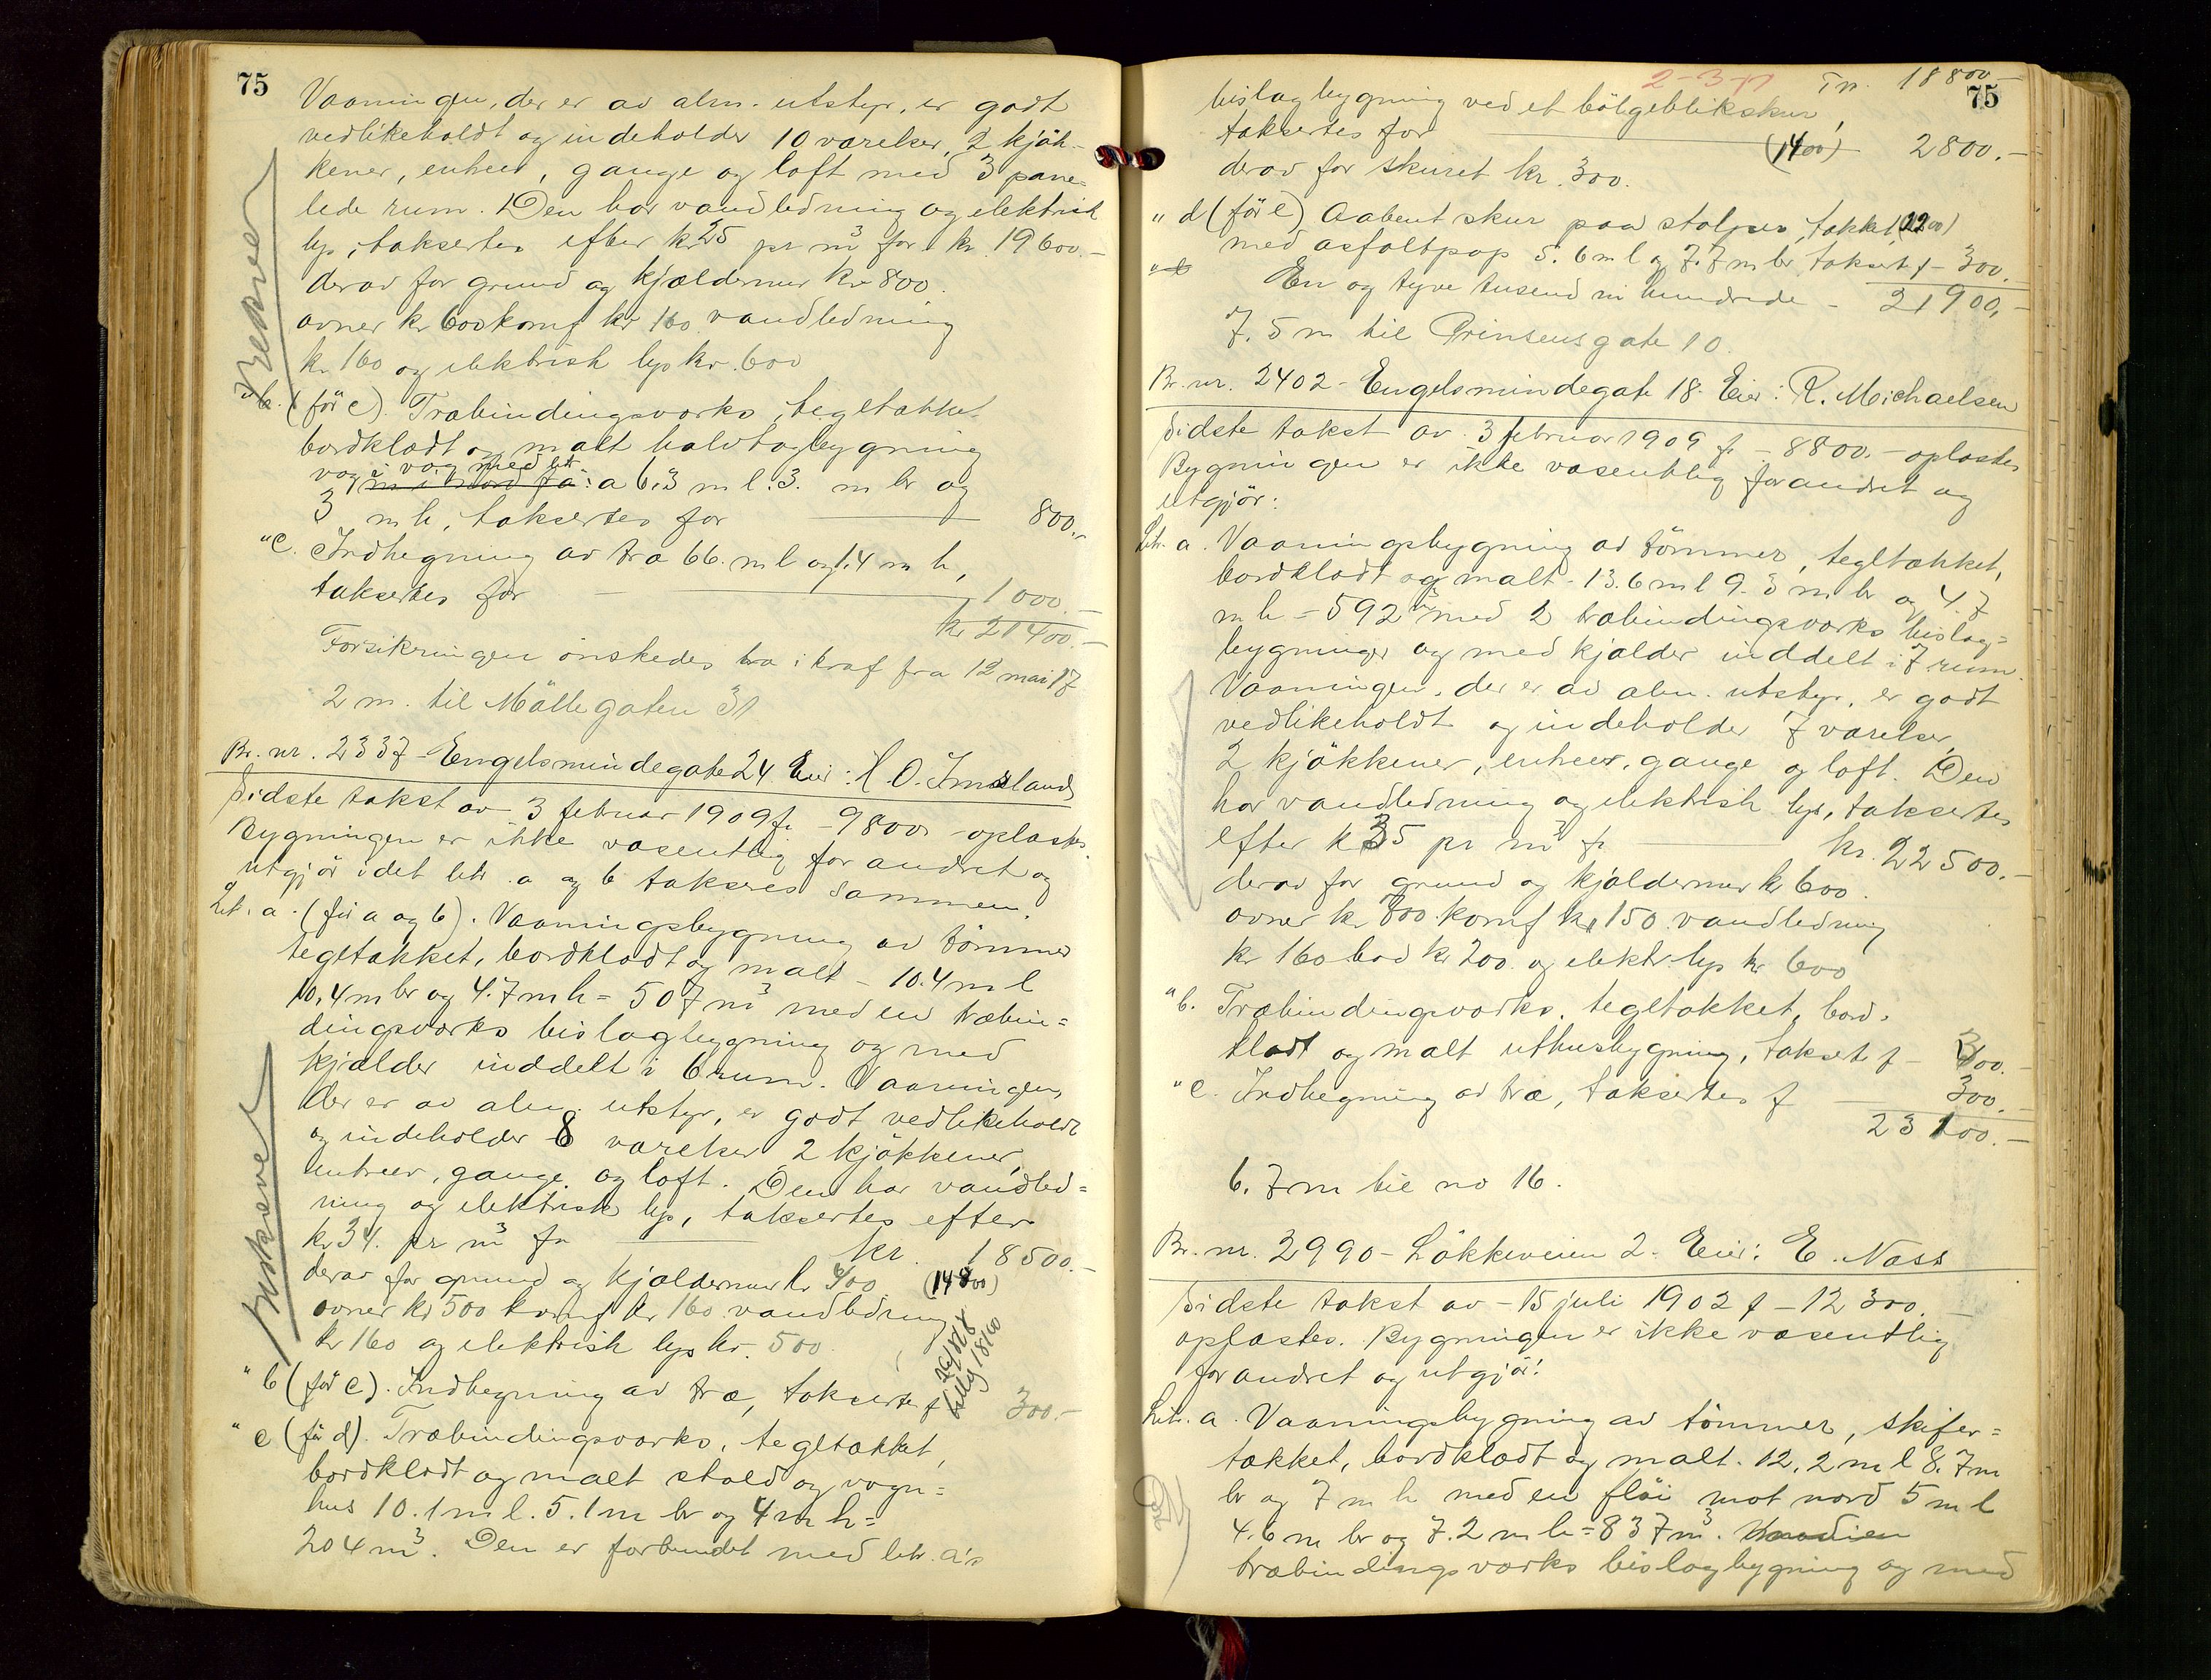 75
Vaaningen, der er av alm. utstyr, er godt
vedlikeholdt og indeholder 10 værelser, 2 kjök-
kener, entreer, gange og loft med 3 pane-
lede rum. Den har vandledning og elektrisk
lys, taksertes efter kr 25 pr m³ for kr. 19600.-
derav for grund og kjældermur kr 800.
ovner kr 600 komf kr 160 vandledning
kr 160 og elektrisk lys kr. 600
" b. (för c). Træbindingsverks, tegltækket
bordklædt og malt halvtagbygning
væg i væg med litr.
a 6.3 m l. 3. m br og
3 m h, taksertes for 800.-
" c. Indhegning av træ 66. m l og 1.4 m h,
taksertes for 1000.-
kr 21400.-
Forsikringen önskedes tra i kraf fra 12 mai 17
2 m. til Möllegaten 31
Br. nr. 2337 - Engelsmindegate 24 Eier: O. Imsland
Sidste takst av 3 februar 1909 fr - 9800 - oplæstes.
Bygningen er ikke væsentlig forandret og
utgjör idet litr. a og b takseres sammen.
Litr. a. (för a og b). Vaaningsbygning av tömmer
tegltækket, bordklædt og malt - 10.4 m l
10,4 m br og 4.7 m h = 507 m³ med en træbin=
dingsverks bislagbygning og med
kjælder inddelt i 6 rum. Vaaningen,
der er av alm. utstyr, er godt vedlikeholdt
og indeholder 8 værelser 2 kjökkener,
entreer, gange og loft. Den har vandled=
ning og elektrisk lys, taksertes efter
kr 34. pr m³ for kr. 18500.-
derav for grund og kjældermur kr 400 (14800)
ovner kr 500 komf kr 160 vandledning
kr 160 og elektrisk lys kr. 500
" b (för c). Indhegning av træ, taksertes f 300.-
" c (för d). Træbindingsverks, tegltækket,
bordklædt og malt stald og vogn=
hus 10.1 m l. 5.1 m br og 4 m h =
204 m³. Den er forbundet med litr. a's
2-3-17 Tr. 18800-
75
bislagbygning ved et bölgeblikskur,
taksertes for (1400) 2800.-
derav for skuret kr. 300.
" d (för e) Aabent skur paa stolper, tækket (1200)
med asfaltpap 5.6 m l og 7.7 m br, taksert f - 300.
En og tyve tusend ni hundrede - 21900,-
7.5 m til Prinsensgate 10.
Br. nr. 2402 - Engelsmindegate 18. Eier: R. Michaelsen
Sidste takst av 3 februar 1909 fr - 8800.- oplæstes
Bygningen er ikke væsentlig forandret og
utgjör:
Litr. a. Vaaningsbygning av tömmer, tegltækket,
bordklædt og malt - 13.6 m l 9.3 m br og 4.7
m h - 592 m³ med 2 træbindingsverks bislag=
bygninger og med kjælder inddelt i 7 rum.
Vaaningen, der er av alm. utstyr, er godt
vedlikeholdt og indeholder 7 værelser,
2 kjökkener, entreer, gange og loft. Den
har vandledning og elektrisk lys, taksertes
efter kr 35 pr m³ fr kr. 22500.-
derav for grund og kjældermur kr 600.
ovner kr 800 komf kr 150 vandledning
kr 160 bad kr 200. og elektr. lys kr 600
" b. Træbindingsverks, tegltækket, bord-
klædt og malt uthusbygning, taksert f - 300.-
" c. Indhegning av træ, taksertes f 300.-
23100.-
6.7 m til no 16.
Br. nr. 2990 - Lökkeveien 2. Eier: E. Næss
Sidste takst av - 15 juli 1902 f - 12300.-
oplæstes. Bygningen er ikke væsentlig
forandret og utgjör:
Litr. a. Vaaningsbygning av tömmer, skifer=
tækket, bordklædt og malt. 12,2 m l 8.7 m
br og 7 m h med en flöi mot nord 5 m l
4.6 m br og 7.2 m h = 837 m³.
træbindingsverks bislagbygning og med